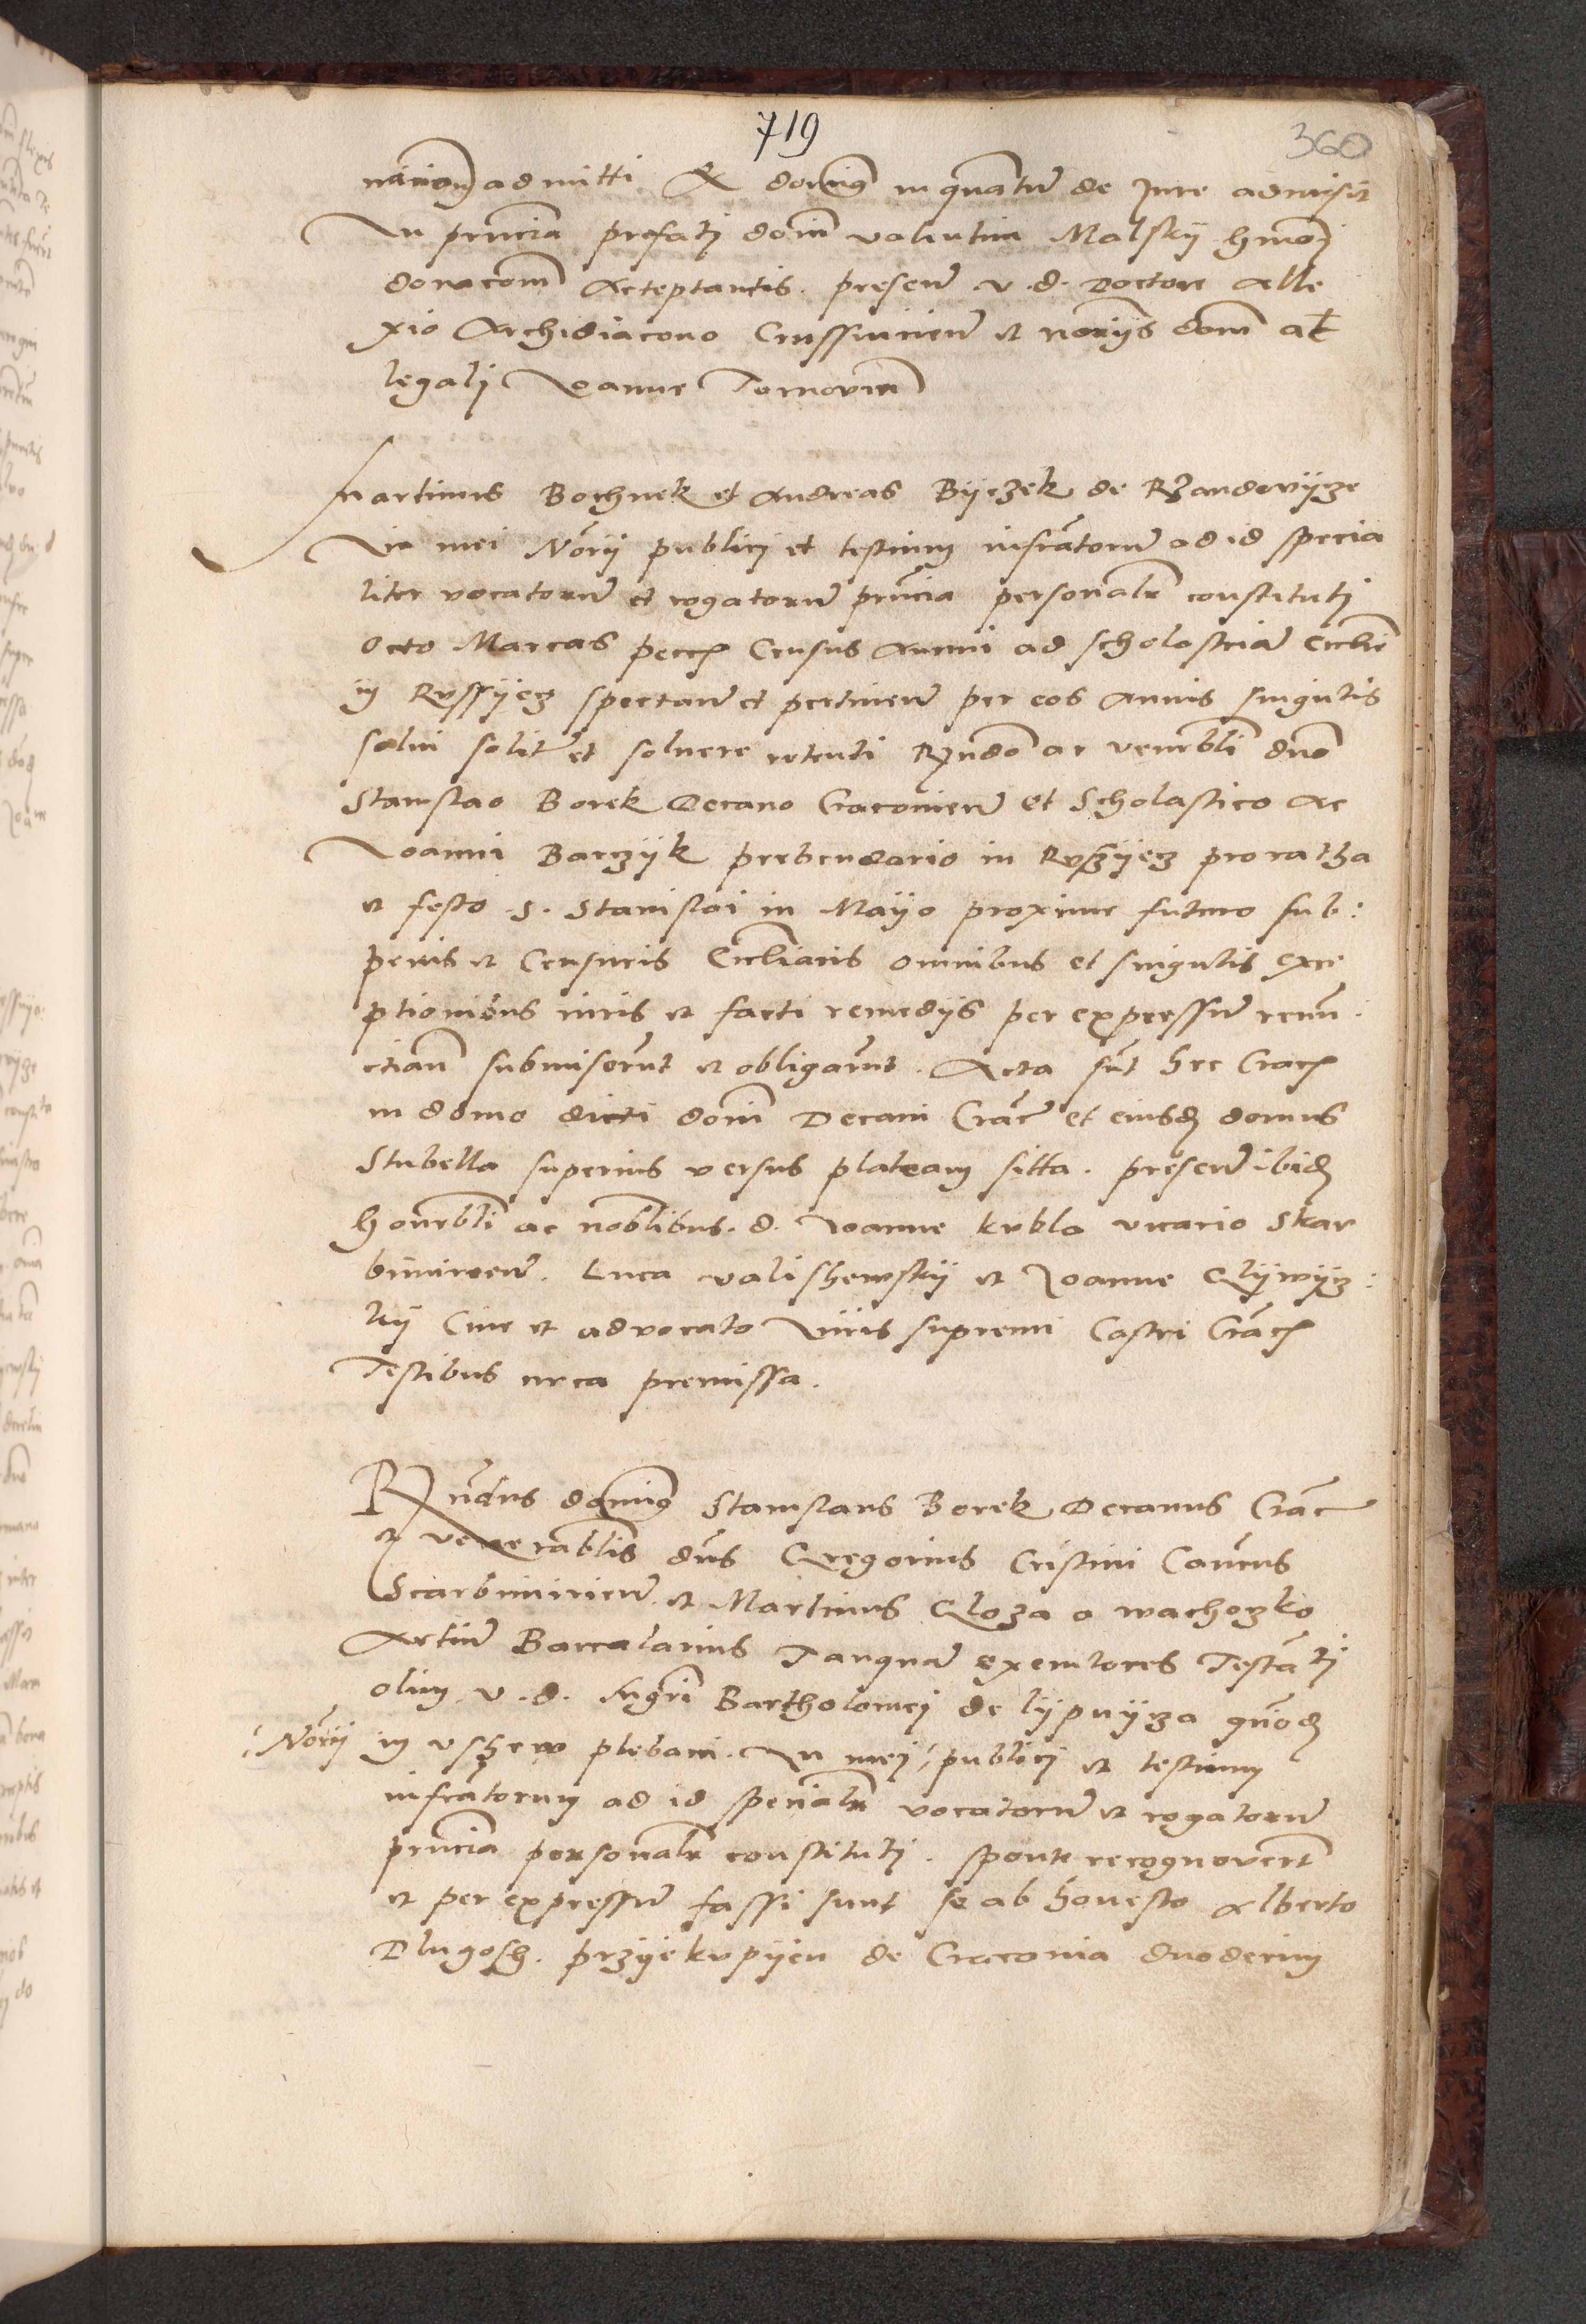 719
360
admitti Et dominus in quantum de Jure admisit
In pñcia prefati domini valentini Malskij hmōi
donacōm Acceptantis. presen̄ v. d. Doctore Alle
xio Archidiacono Crussvicien̄ et noriis dōm ac̄
legali Joanne Tomovien̄
Martinus Bochnek et Andreas Byczek de Rzandovijcze
In mei Nōrij publici et testium infrāscriptorum ad id specia
liter vocatorum et rogatorum pñcia personalr̄ constituti
Octo Marcas peccū Census Annui ad scholastriam Ecclīe
in Russijecz spectan̄ et pertinen̄ per eos Annis singulis
solui solit̄ et soluere retenti Rn̄do ac venerbli dn̄o
Stanislao Borek Decano Cracovien̄ et Scholastico Ac
Joanni Barczijk prebendario in Ruszijecz pro ratha
et festo S. Stanislai in Maijo proxime futuro sub:
penis et Censuris Ecclīaris omnibus et singulis exce
ptionibus iuris et facti remedijs per expressum renun
ctian̄ submiserūt et obligarūt. Acta sūt hec Crac̄
in domo dicti dōni Decani Crac̄ et eiusd̄ domus
Stubella superius versus plateam sitta. presen̄ ibid̄
honorbli ac noblibus. d. Joanne kubla vicario Skar
bimirien̄. Luca valishewskij et Joanne Glijwijcz:
kij Cive et advocato Juris supremi Castri Crac̄
Testibus circa premissa.
Rn̄dus dominus Stanislaus Borek Decanus Crac̄
et venerablis dn̄s Gregorius Cristini Can̄cus
Scarbimirien̄. et Martinus Gloza a wachozko
Artium Baccalarius Tanquam executores Testāti
olim v. d. Bartholomei de lijpnijcza quōd̄
: Nōrij in uszew plebani. In mei : publici et testium
infrāscriptorum ad id specialr̄ vocatorum et rogatorum
pñcia personalr̄ constituti. sponte recognoverūt
et per expressum fassi sunt se ab honesto Alberto
Dlugosz. przijekupijen de Cracovia duodecim